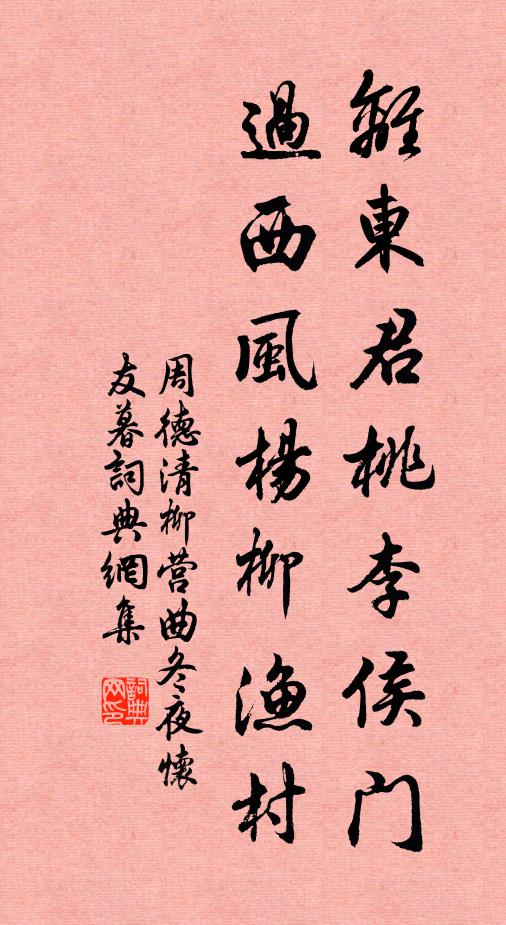 離東君桃李侯門
過西風楊柳漁村
周德清柳營曲冬夜懷
友暮詞典網集
詞典網印